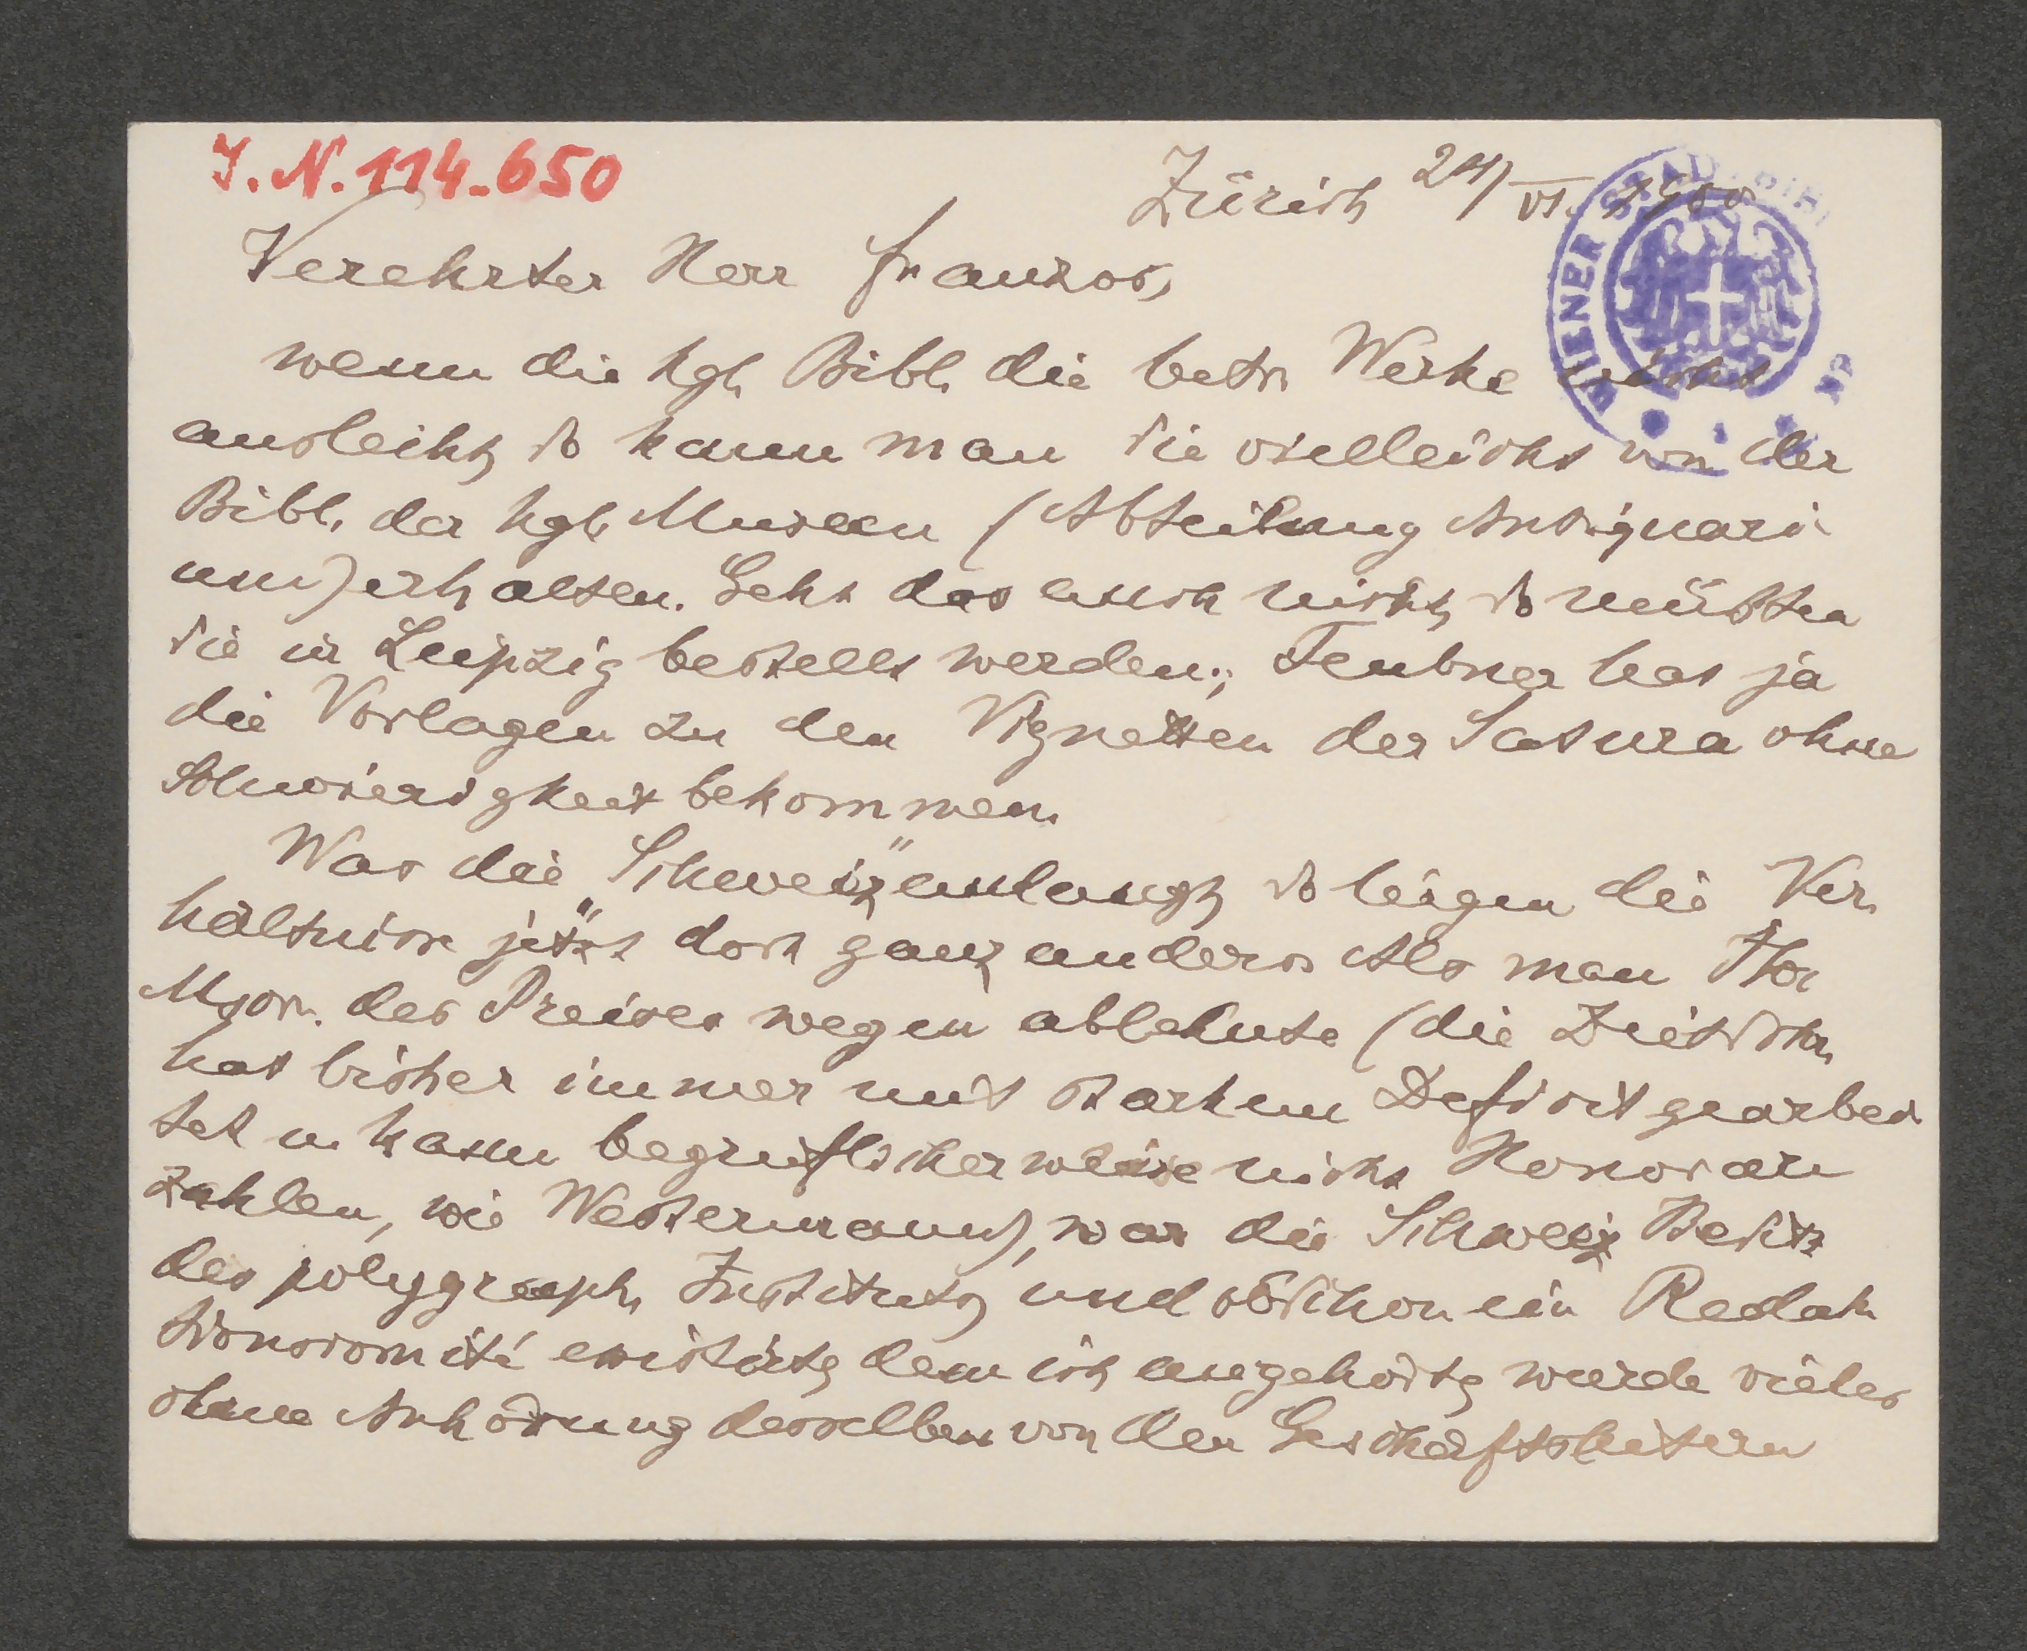 J. N. 114.650
Zürich 24/VI. 1900
WIENER STADTBIBL
Verehrter Herr Franzos,
wenn die kgl. Bibl. die betr. Werke nicht
ausleiht, so kann man sie vielleicht von der
Bibl. der kgl. Museen (Abteilung Antiquari
um) erhalten. Geht das auch nicht, so müßten
sie in Leipzig bestellt werden; Teubner hat ja
die Vorlagen zu den Vignetten der Satura ohne
Schwierigkeit bekommen.
Was die „Schweiz" anlangt, so liegen die Ver
hältnisse jetzt dort ganz anders. Als man Ihr
des Preises wegen ablehnte (die Zeitschr.
hat bisher immer mit starkem Deficit gearbei
tet u. kann begreiflicherweise nicht Honorare
zahlen, wie Westermann), war die Schweiz Besitz
des polygraph. Instituts, und obschon ein Redak
tionscomité existirte, dem ich angehörte, wurde vieles
ohne Anhörung desselben von den Geschäftsleitern